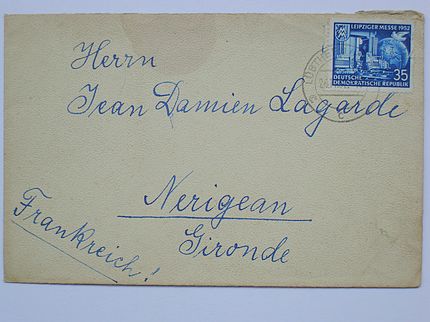 LEIPZIGER MESSE 1952
35
DEUTSCHE
DEMOKRATISCHE REPUBLIK
Herrn
Jean Damien Lagarde
Nerigean
Gironde
Frankreich!